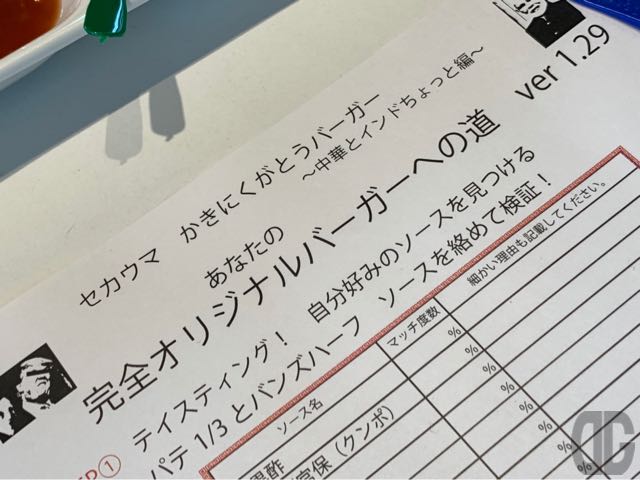 セカウマ　かきにくがとうバーガー
〜中華とインドちょっと編〜
あなたの
完全オリジナルバーガーへの道　ver 1.29
テイスティング！　自分好みのソースを見つける
パテ 1/3 とバンズハーフ　ソースを絡めて検証！
ソース名
マッチ度数
細かい理由も記載してください。
%
%
%
%
%
%
%
黒酢
宮保（ケンポ）
DG